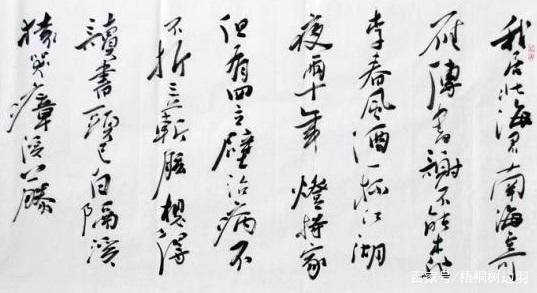 我居北海君南海寄
雁傳書謝不能桃
李春風酒一杯江湖
夜雨十年燈持家
但有四立壁治病不
不折三肱想得
讀書頭已白隔溪
猿哭瘴溪藤
百家号/梧桐树边羽